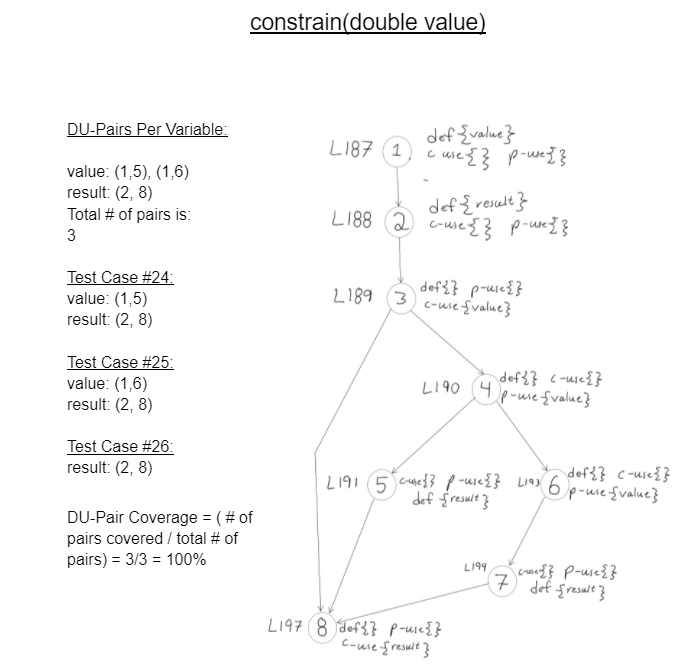 constrain(double value)
DU-Pairs Per Variable:
value: (1,5), (1,6)
result: (2, 8)
Total # of pairs is:
3
Test Case #24:
value: (1,5)
result: (2, 8)
Test Case #25:
value: (1,6)
result: (2, 8)
Test Case #26:
result: (2, 8)
DU-Pair Coverage = ( # of
pairs covered / total # of
pairs) = 3/3 = 100%
L187 1 def{value}
c use{} p-use{}
L188 2 def{result}
c-use{} p-use{}
L189 3 def{} p-use{}
c-use{value}
L190 4 def{} c-use{}
p-use{value}
L191 5 c-use{} p-use{}
def {result}
L193 6 def{} c-use{}
p-use{value}
L194 7 c-use{} p-use{}
def {result}
L197 8 def{} p-use{}
c-use{result}